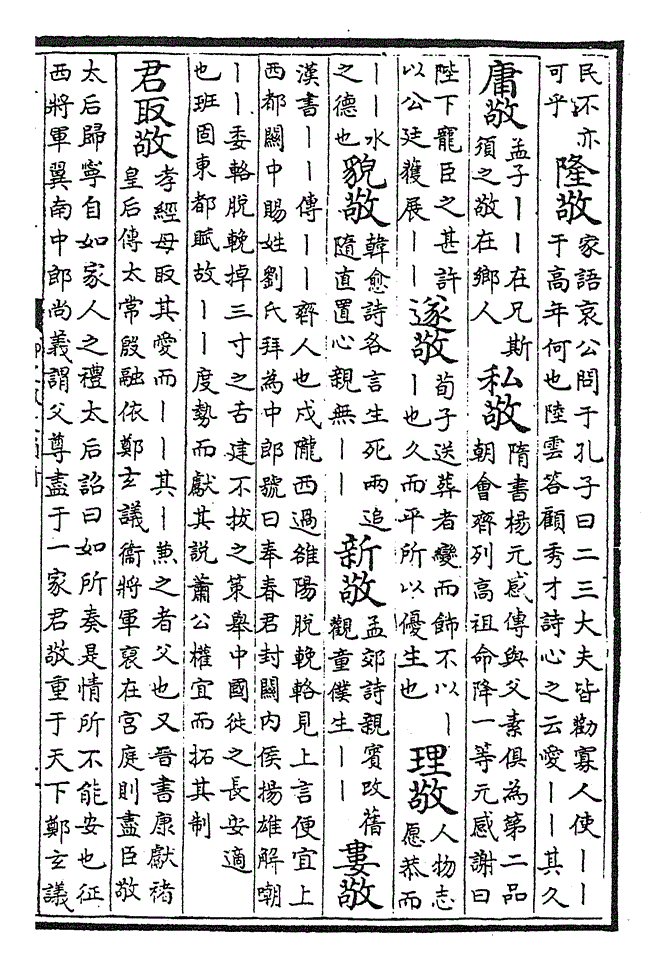 民不亦
可乎
隆敬
家語哀公問于孔子曰二三大夫皆勸寡人使丨丨
于高年何也陸雲答顧秀才詩心之云愛丨丨其久
庸敬
孟子丨丨在兄斯
須之敬在鄉人
私敬
隋書楊元感傳與父素俱為第二品
朝會齊列高祖命降一等元感謝曰
陛下寵臣之甚許
以公廷獲展丨丨
遂敬
荀子送葬者變而飾不以丨
丨也久而平所以優生也
理敬
人物志
愿恭而
丨丨水
之德也
貌敬
韓愈詩各言生死兩追
隨直置心親無丨丨
新敬
孟郊詩親賓改舊
觀童僕生丨丨
婁敬
漢書丨丨傳丨丨齊人也戍隴西過雒陽脫輓輅見上言便宜上
西都關中賜姓劉氏拜為中郎號曰奉春君封關內侯揚雄解嘲
丨丨委輅脫輓掉三寸之舌建不拔之策舉中國徙之長安適
也班固東都賦故丨丨度勢而獻其說蕭公權宜而拓其制
君取敬
孝經母取其愛而丨丨其丨兼之者父也又晉書康獻褚
皇后傳太常殷融依鄭玄議衞將軍裒在宮庭則盡臣敬
太后歸寧自如家人之禮太后詔曰如所奏是情所不能安也征
西將軍翼南中郎尚義謂父尊盡于一家君敬重于天下鄭玄議